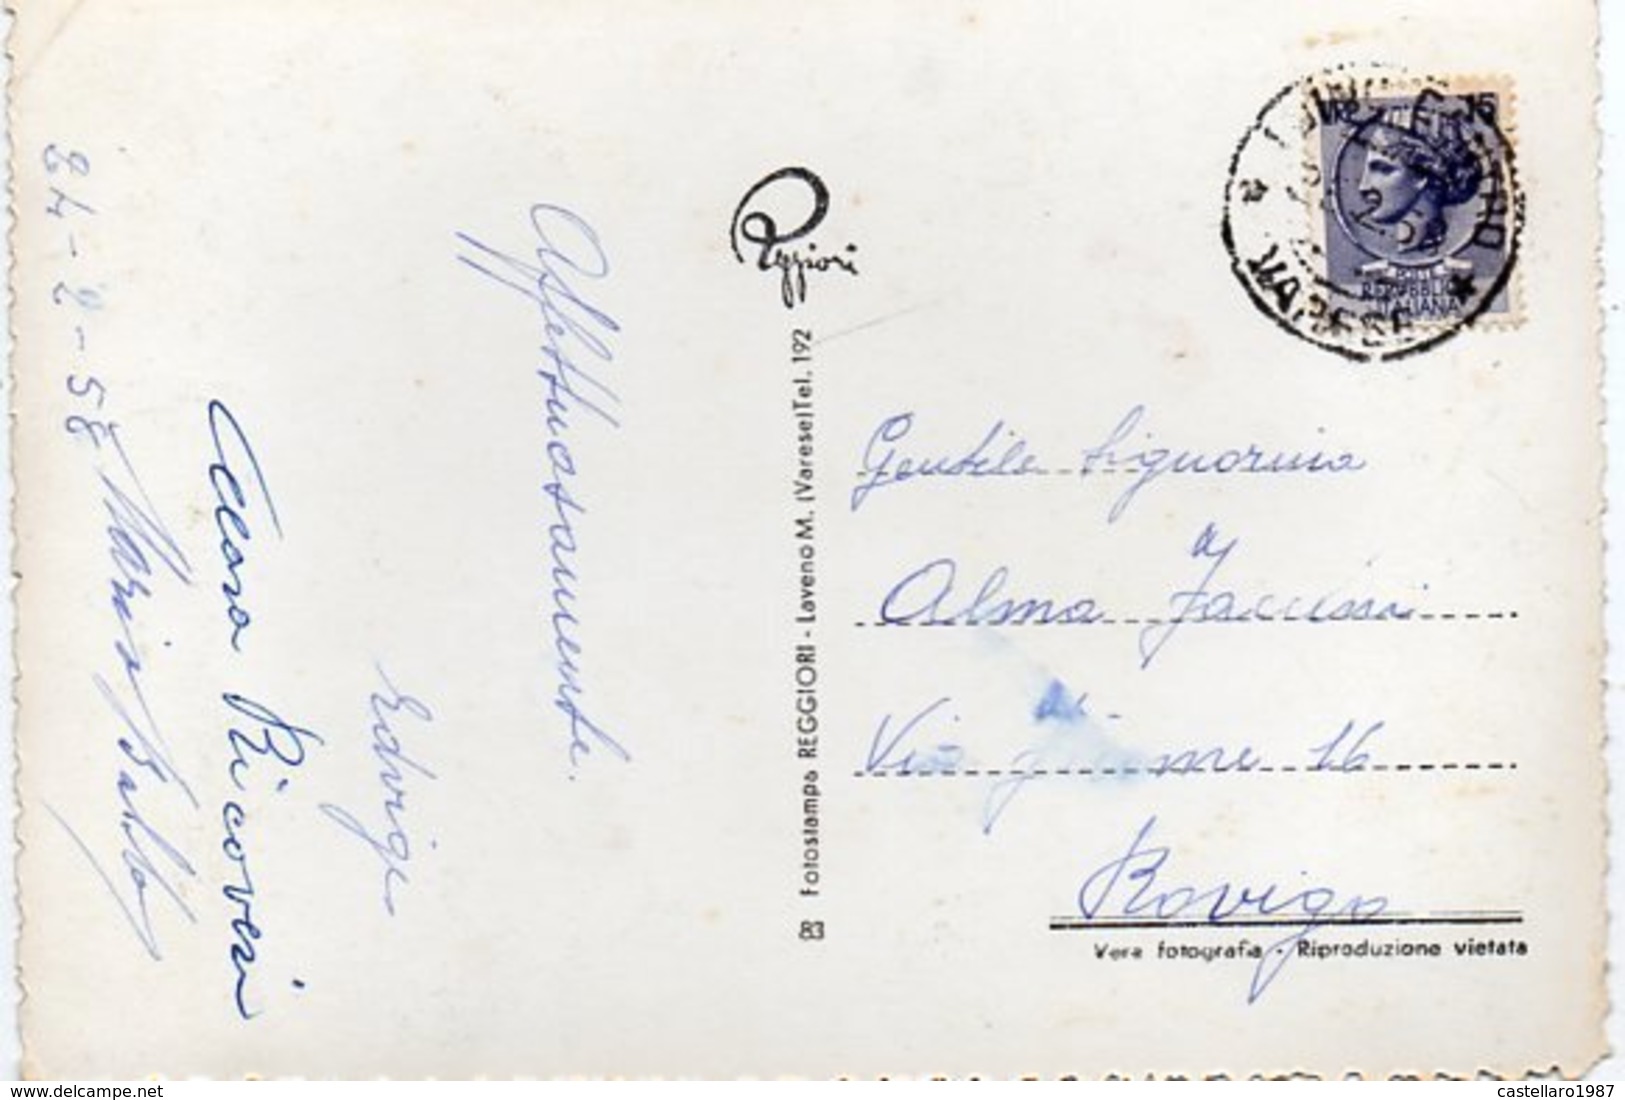 24-2-58
Affettuosamente.
Edvige
Clara Ricoveri
Maria
Reggiori
83 Fotostampa REGGIORI - Laveno M. (Varese) Tel. 192
LIRE 15
POSTE
REPUBBLICA
ITALIANA
VARESE
Gentile Signorina
Alma
Via 16
Rovigo
Vera fotografia - Riproduzione vietata
castellaro1987